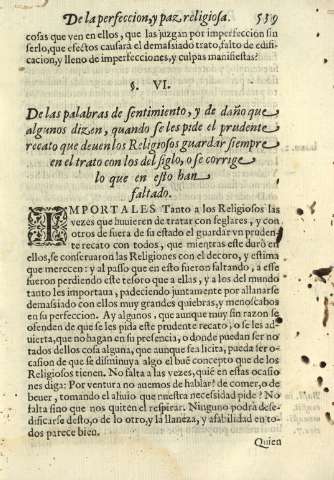 De la perfeccion, y paz religiosa. 539
cosas que ven en ellos, que las juzgan por imperfeccion sin
serlo, que efectos causarà el demasiado trato, falto de edifi-
cacion, y lleno de imperfecciones, y culpas manifiestas?
§. VI.
De las palabras de sentimiento, y de daño que
algunos dizen, quando se les pide el prudente
recato que deuen los Religiosos guardar siempre
en el trato con los del siglo, o se corrige
lo que en esto han
faltado.
IMPORTALES Tanto a los Religiosos las
vezes que huuieren de tratar con seglares, y con
otros de fuera de su estado el guardar vn pruden-
te recato con todos, que mientras este durò en
ellos, se conseruaron las Religiones con el decoro, y estima
que merecen: y al passo que en esto fueron faltando, a esse
fueron perdiendo este tesoro que a ellas, y a los del mundo
tanto les importaua, padeciendo juntamente por allanarse
demasiado con ellos muy grandes quiebras, y menoscabos
en su perfeccion. Ay algunos, que aunque muy sin razon se
ofenden de que se les pida este prudente recato, o se les ad-
uierta, que no hagan en su presencia, o donde puedan ser no
tados dellos cosa alguna, que aunque sea licita, pueda ser o-
casion de que se disminuya algo el buẽ concepto que de los
Religiosos tienen. No falta a las vezes, quiẽ en estas ocasio
nes diga: Por ventura no auemos de hablar? de comer, o de
beuer, tomando el aliuio que nuestra necessidad pide? No
falta sino que nos quiten el respirar. Ninguno podrà dese-
dificarse desto, o de lo otro, y la llaneza, y afabilidad en to-
dos parece bien.
Quien